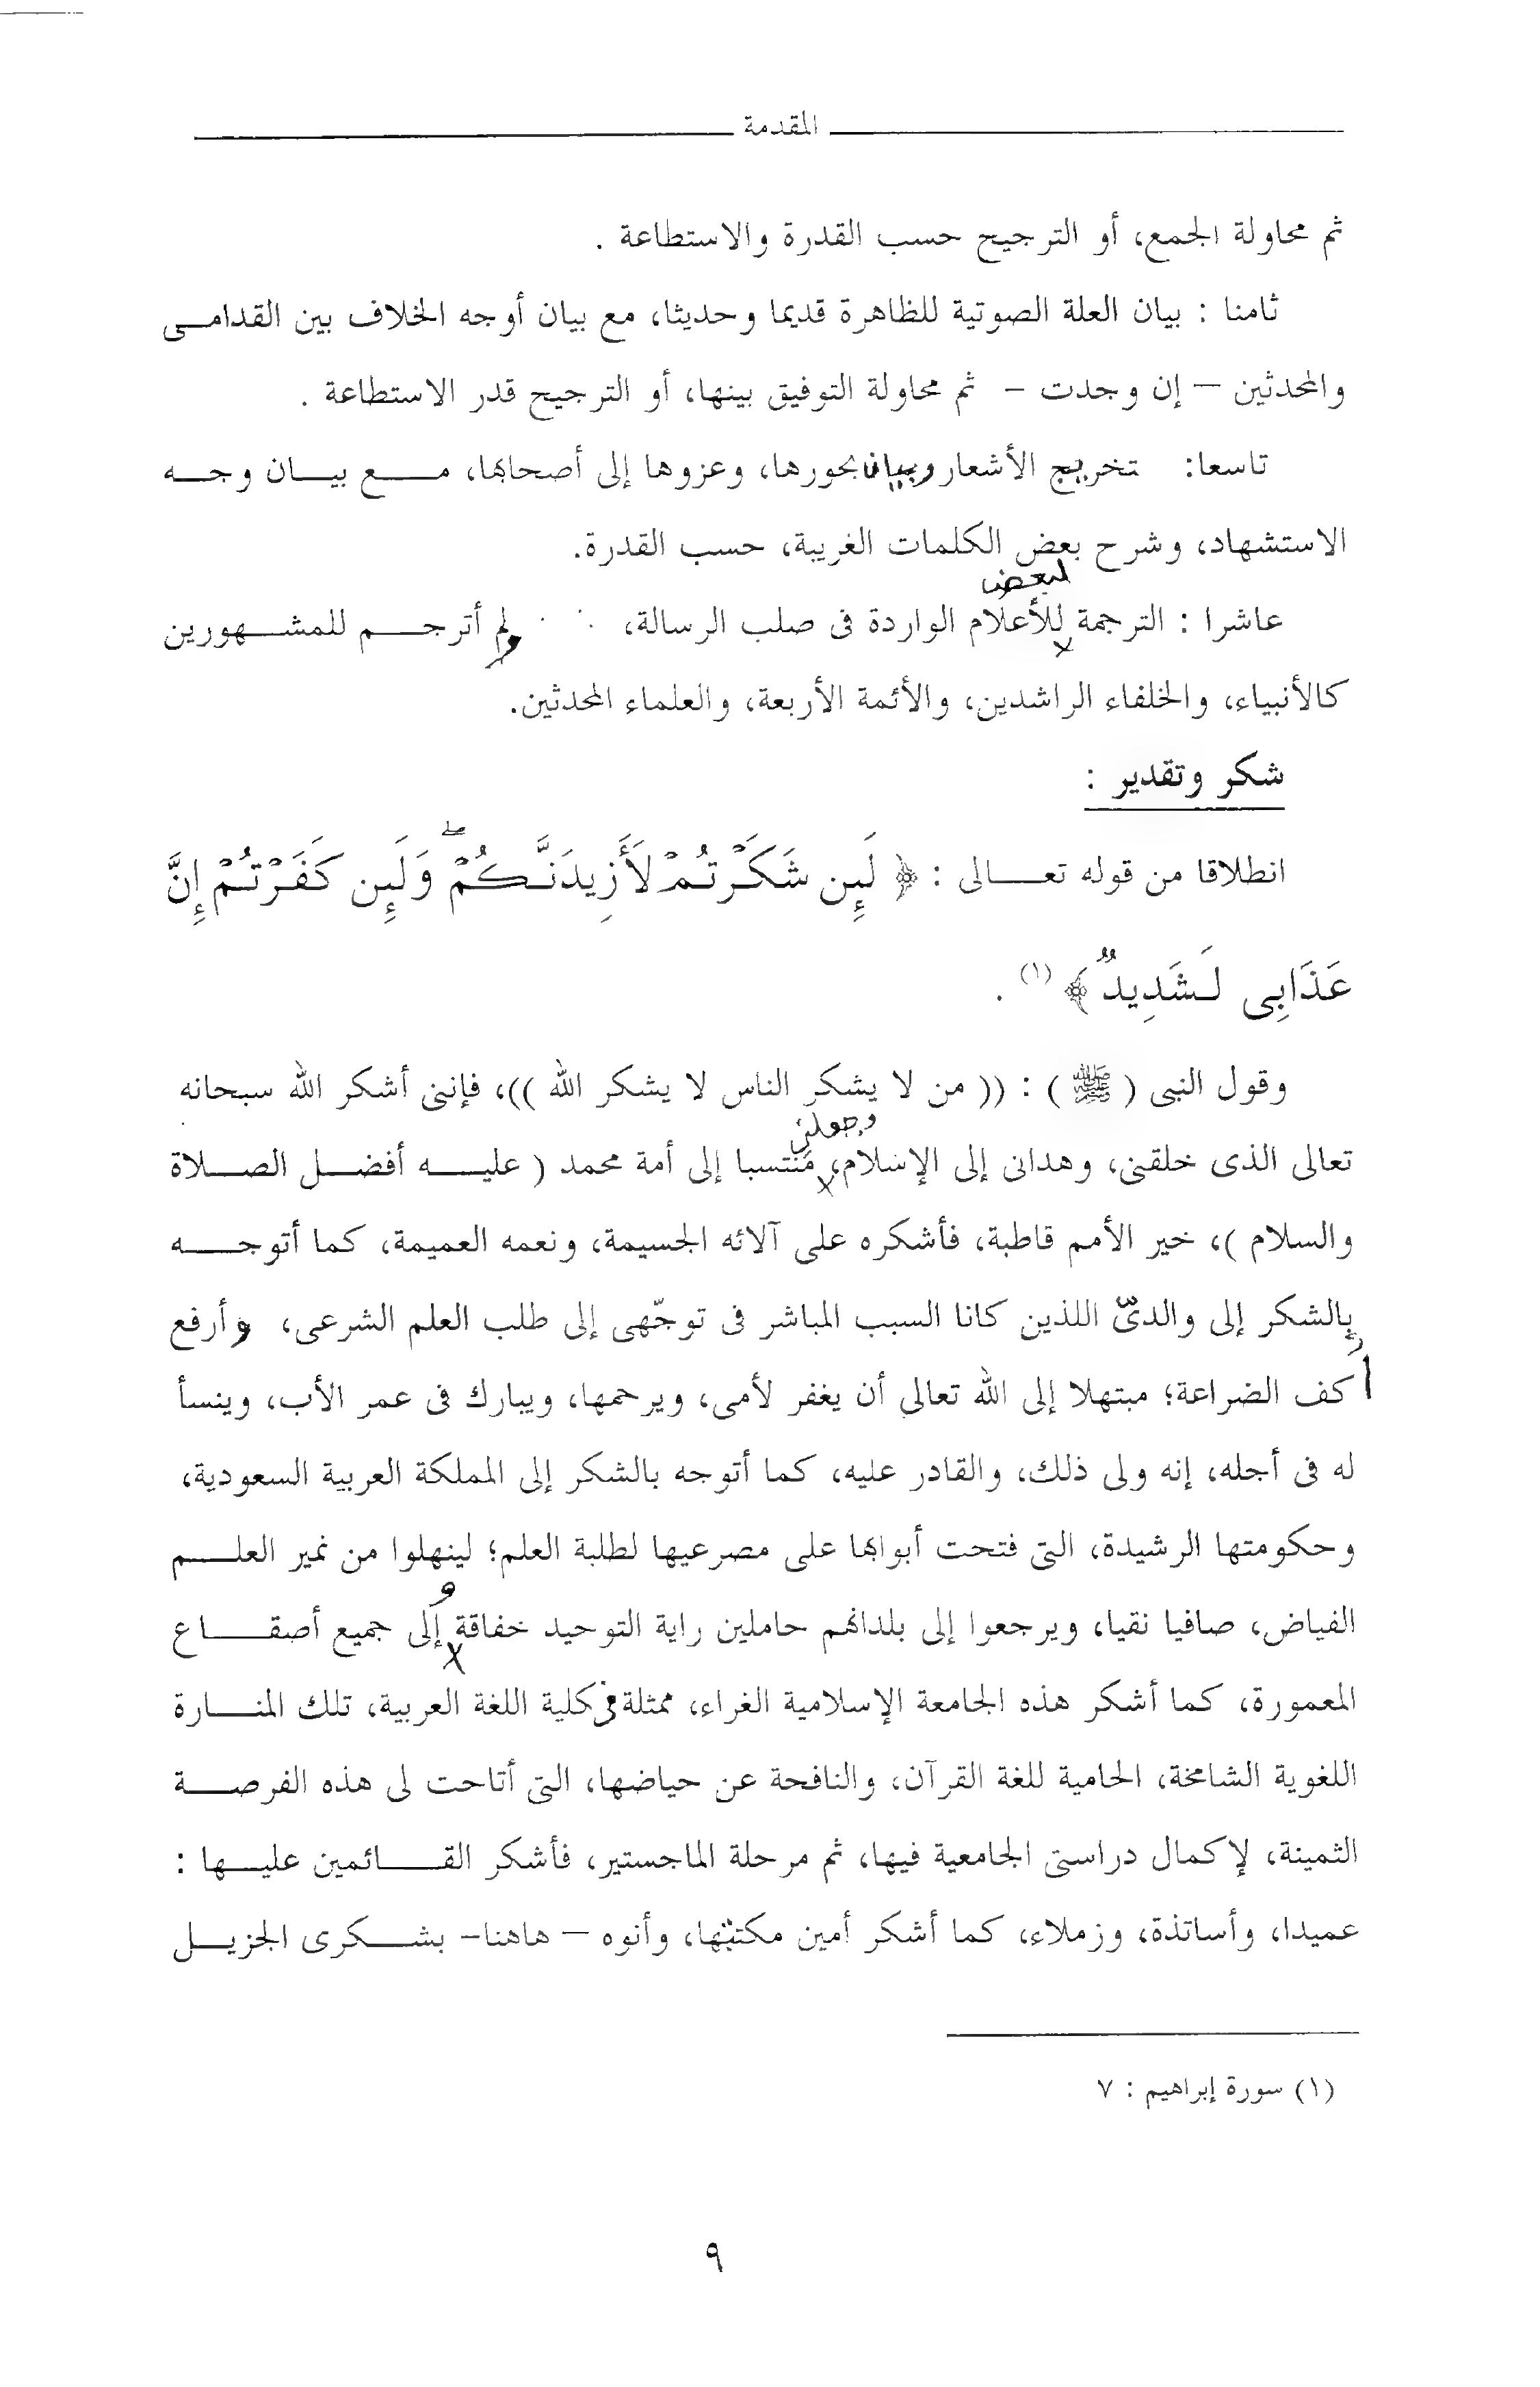 المقدمة
ثم محاولة الجمع، أو الترجيح حسب القدرة والاستطاعة .
ثامنا : بيان العلة الصوتية للظاهرة قديما وحديثا، مع بيان أوجه الخلاف بين القدامــى
والمحدثين – إن وجدت – ثم محاولة التوفيق بينها، أو الترجيح قدر الاستطاعة .
تاسعا: تخريج الأشعار وبيان بحورها، وعزوها إلى أصحابها، مـــع بيـــان وجـــه
الاستشهاد، وشرح بعض الكلمات الغريبة، حسب القدرة.
لبعض
عاشرا : الترجمة للأعلام الواردة فى صلب الرسالة، ولم أترجـــم للمشـــهورين
كالأنبياء، والخلفاء الراشدين، والأئمة الأربعة، والعلماء المحدثين.
شكر وتقدير :
انطلاقا من قوله تعـــالى : ﴿ لَئِن شَكَرْتُمْ لَأَزِيدَنَّكُمْ ۖ وَلَئِن كَفَرْتُمْ إِنَّ
عَذَابِى لَشَدِيدٌ ﴾ (١) .
وقول النبى ( ﷺ ) : (( من لا يشكر الناس لا يشكر الله ))، فإننى أشكر الله سبحانه
وجعلنى
تعالى الذى خلقنى، وهدانى إلى الإسلام، منتسبا إلى أمة محمد ( عليـــه أفضـــل الصـــلاة
والسلام )، خير الأمم قاطبة، فأشكره على آلائه الجسيمة، ونعمه العميمة، كما أتوجـــه
بالشكر إلى والدىّ اللذين كانا السبب المباشر فى توجّهى إلى طلب العلم الشرعى، وأرفع
أكف الضراعة؛ مبتهلا إلى الله تعالى أن يغفر لأمى، ويرحمها، ويبارك فى عمر الأب، وينسأ
له فى أجله، إنه ولى ذلك، والقادر عليه، كما أتوجه بالشكر إلى المملكة العربية السعودية،
وحكومتها الرشيدة، التى فتحت أبوابها على مصرعيها لطلبة العلم؛ لينهلوا من نمير العلـــم
الفياض، صافيا نقيا، ويرجعوا إلى بلدانهم حاملين راية التوحيد خفاقة وإلى جميع أصقـــاع
المعمورة، كما أشكر هذه الجامعة الإسلامية الغراء، ممثلة فى كلية اللغة العربية، تلك المنـــارة
اللغوية الشامخة، الحامية للغة القرآن، والنافحة عن حياضها، التى أتاحت لى هذه الفرصـــة
الثمينة، لإكمال دراستى الجامعية فيها، ثم مرحلة الماجستير، فأشكر القـــائمين عليـــها :
عميدا، وأساتذة، وزملاء، كما أشكر أمين مكتبتها، وأنوه – هاهنا– بشـــكرى الجزيـــل
(١) سورة إبراهيم : ٧
٩